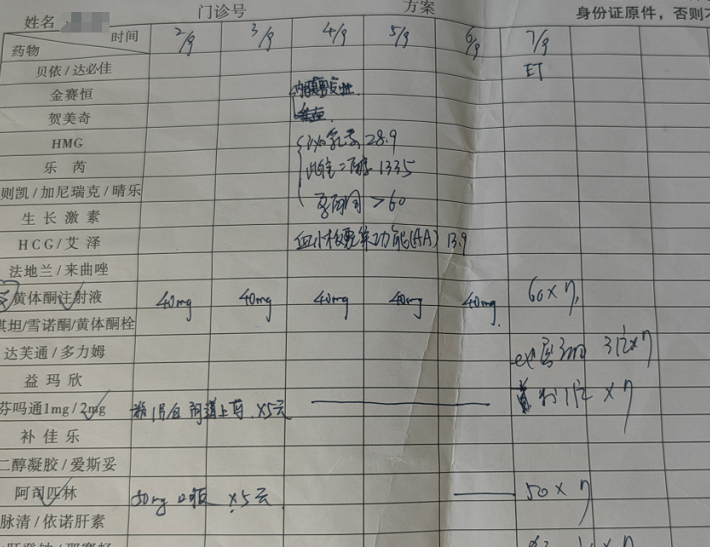 门诊号 方案
姓名 身份证原件，否则
时间 2/9 3/9 4/9 5/9 6/9 7/9
药物
贝依/达必佳 ET
金赛恒
贺美奇
HMG 泌乳素 28.9
乐芮 雌二醇 1335
则凯/加尼瑞克/晴乐 孕酮 >60
生长激素
HCG/艾泽 血小板聚集功能(AA) 13.9
法地兰/来曲唑
黄体酮注射液 40mg 40mg 40mg 40mg 40mg 60×7
琪坦/雪诺酮/黄体酮栓
达芙通/多力姆 3
益玛欣
芬吗通1mg/2mg 阴道上药 ×5天 ×7
补佳乐
二醇凝胶/爱斯妥
阿司匹林 50mg ×5天 50×7
脉清/依诺肝素